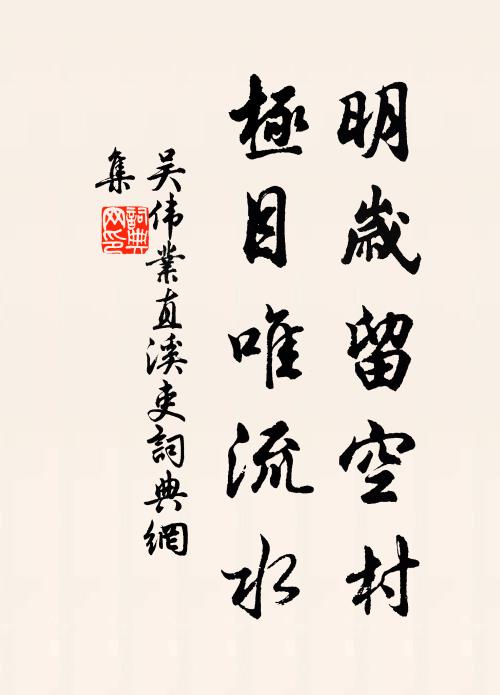 明歲留空村
極目唯流水
吴伟業直溪吏詞典網
集
詞典网印